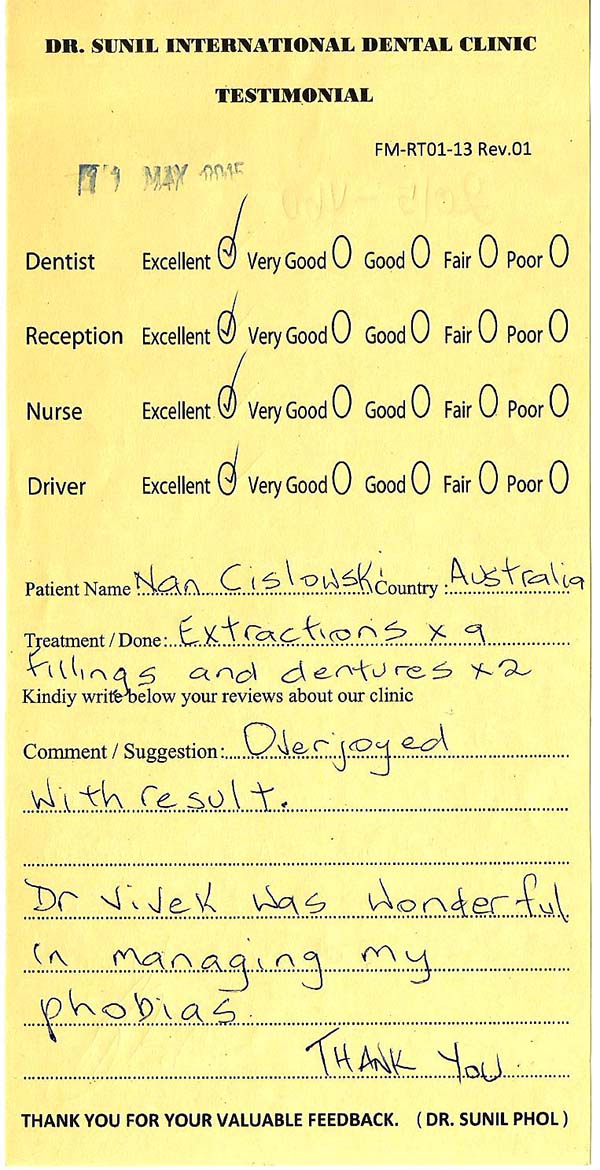 DR. SUNIL INTERNATIONAL DENTAL CLINIC
TESTIMONIAL
FM-RT01-13 Rev.01
MAY 2015
Dentist Excellent Very Good Good Fair Poor
Reception Excellent Very Good Good Fair Poor
Nurse Excellent Very Good Good Fair Poor
Driver Excellent Very Good Good Fair Poor
Patient Name : Nan Cislowski Country : Australia
Treatment / Done: Extractions x 9
fillings and dentures x 2
Kindiy write below your reviews about our clinic
Comment / Suggestion: Overjoyed
with result.
Dr Vivek was wonderful
in managing my
phobias.
THANK YOU
THANK YOU FOR YOUR VALUABLE FEEDBACK. ( DR. SUNIL PHOL )